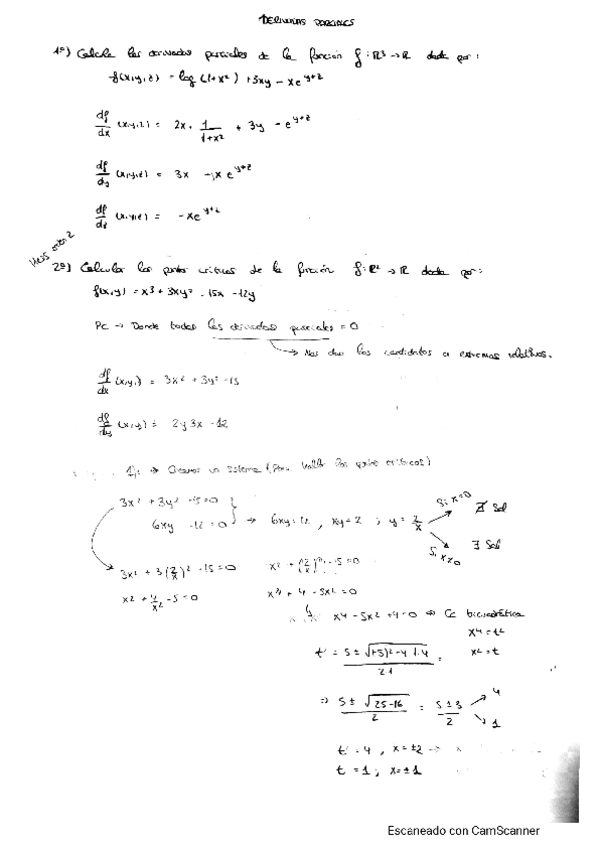 DERIVADAS PARCIALES
1º) Calcula las derivadas parciales de la función f: R³ → R dada por:
f(x,y,z) = log(1+x²) + 3xy - xe^{y+z}
df/dx (x,y,z) = 2x · 1/(1+x²) + 3y - e^{y+z}
df/dy (x,y,z) = 3x - x e^{y+z}
df/dz (x,y,z) = -xe^{y+z}
2º) Calcular los puntos críticos de la función f: R² → R dada por:
f(x,y) = x³ + 3xy² - 15x - 12y
PC → Donde todas las derivadas parciales = 0
→ Nos dan los candidatos a extremos relativos.
df/dx (x,y) = 3x² + 3y² - 15
df/dy (x,y) = 2y3x - 12
un sistema
3x² + 3y² - 15 = 0
6xy - 12 = 0 } → 6xy = 12, xy = 2; y = 2/x
Si x=0 ∄ Sol
Si x≠0 ∃ Sol
3x² + 3(2/x)² - 15 = 0
x² + 4/x² - 5 = 0
x⁴ + 4 - 5x² = 0
x⁴ - 5x² + 4 = 0 ⇒ Ec bicuadrática
x⁴ = t²
x² = t
t = 5 ± √((+5)² - 4·1·4) / 2·1 =
⇒ 5 ± √(25-16) / 2 = 5 ± 3 / 2 → 4
→ 1
t = 4, x = ±2 →
t = 1; x = ±1
Escaneado con CamScanner